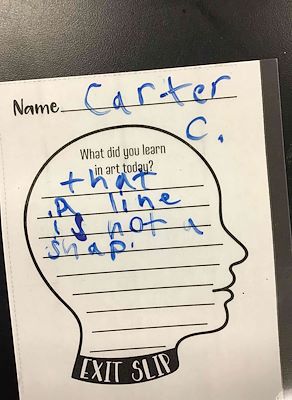 Name Carter
C.
What did you learn
in art today?
that
A line
is not a
shap.
EXIT SLIP